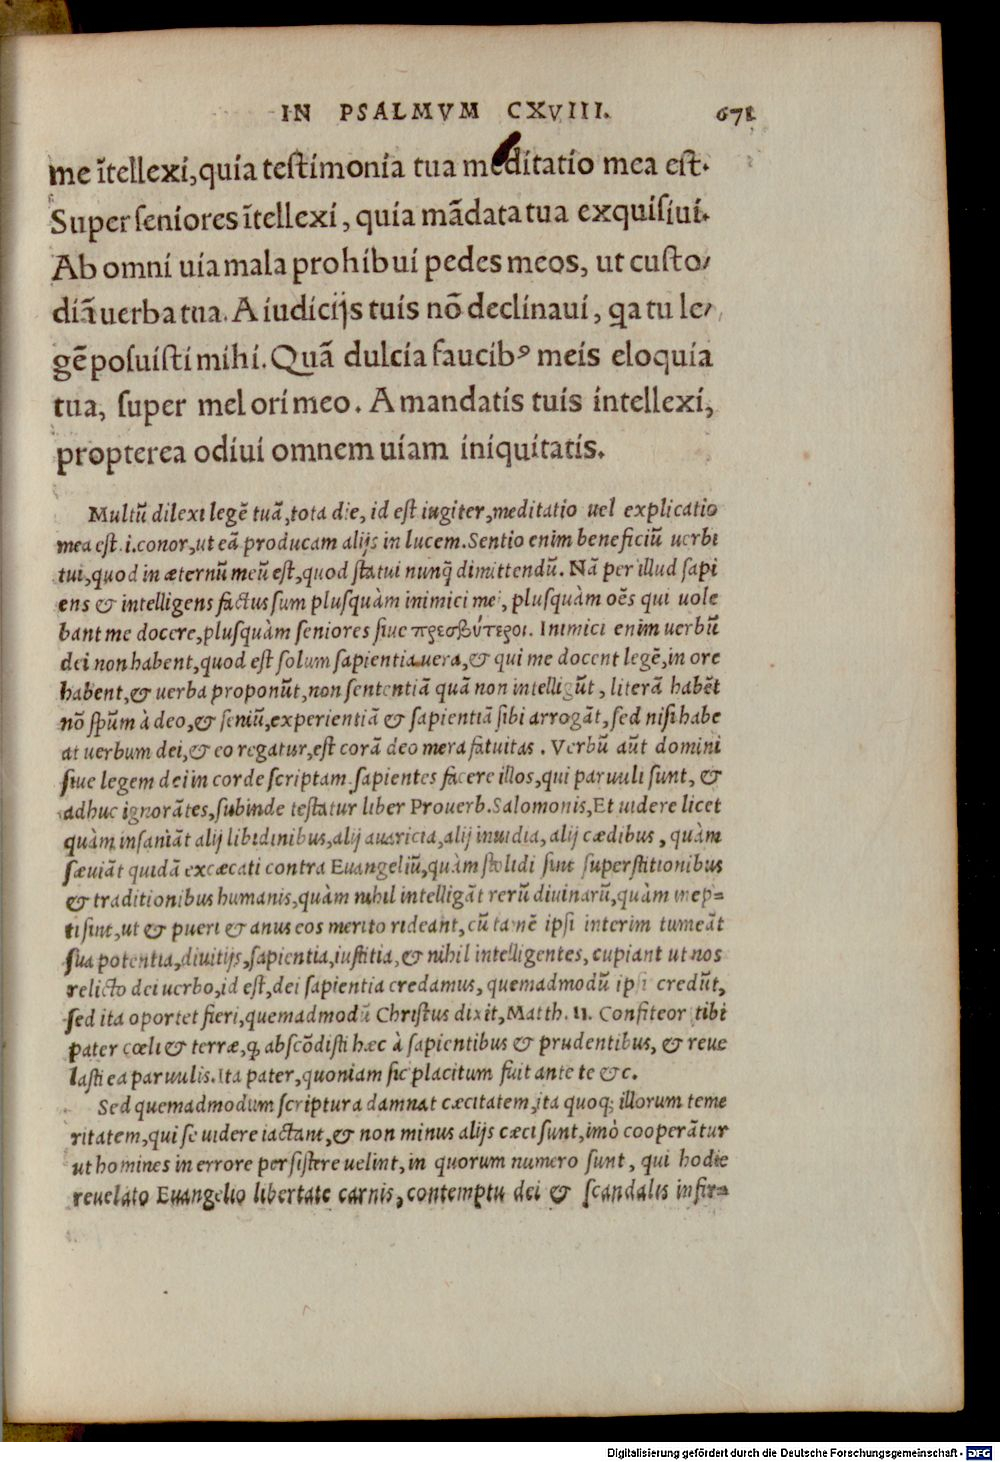 IN PSALMVM CXVIII. 671
me ĩtellexi, quia testimonia tua meditatio mea est.
Super seniores ĩtellexi, quia mãdata tua exquisiui.
Ab omni uia mala prohibui pedes meos, ut custo/
diã uerba tua. A iudicijs tuis nõ declinaui, qa tu le/
gẽ posuisti mihi. Quã dulcia faucibꝰ meis eloquia
tua, super mel ori meo. A mandatis tuis intellexi,
propterea odiui omnem uiam iniquitatis.
Multũ dilexi legẽ tuã, tota die, id est iugiter, meditatio uel explicatio
mea est .i. conor, ut eã producam alijs in lucem. Sentio enim beneficiũ uerbi
tui, quod in æternũ meũ est, quod statui nunq̃ dimittendũ. Nã per illud sapi
ens & intelligens factus sum plusquàm inimici mei, plusquàm oẽs qui uole
bant me docere, plusquàm seniores siue πρεσβύτεροι. Inimici enim uerbũ
dei non habent, quod est solum sapientia uera, & qui me docent legẽ, in ore
habent, & uerba proponũt, non sententiã quã non intelligũt, literã habẽt
nõ sp̃um à deo, & seniũ, experientiã & sapientiã sibi arrogãt, sed nisi habe
at uerbum dei, & eo regatur, est corã deo mera fatuitas. Verbũ aũt domini
siue legem dei in corde scriptam, sapientes facere illos, qui paruuli sunt, &
adhuc ignorãtes, subinde testatur liber Prouerb. Salomonis, Et uidere licet
quàm insaniãt alij libidinibus, alij auaricia, alij inuidia, alij cædibus, quàm
sæuiãt quidã excæcati contra Euangeliũ, quàm stolidi sint superstitionibus
& traditionibus humanis, quàm nihil intelligãt rerũ diuinarũ, quàm inep=
ti sint, ut & pueri & anus eos merito rideant, cũ tamẽ ipsi interim tumeãt
sua potentia, diuitijs, sapientia, iustitia, & nihil intelligentes, cupiant ut nos
relicto dei uerbo, id est, dei sapientia credamus, quemadmodũ ipsi credũt,
sed ita oportet fieri, quemadmodũ Christus dixit, Matth. 11. Confiteor tibi
pater cœli & terræ, ꝙ abscõdisti hæc à sapientibus & prudentibus, & reue
lasti ea paruulis. Ita pater, quoniam sic placitum fuit ante te &c.
Sed quemadmodum scriptura damnat cæcitatem, ita quoq; illorum teme
ritatem, qui se uidere iactant, & non minus alijs cæci sunt, imò cooperãtur
ut homines in errore persistere uelint, in quorum numero sunt, qui hodie
reuelato Euangelio libertate carnis, contemptu dei & scandalis infir=
Digitalisierung gefördert durch die Deutsche Forschungsgemeinschaft - DFG